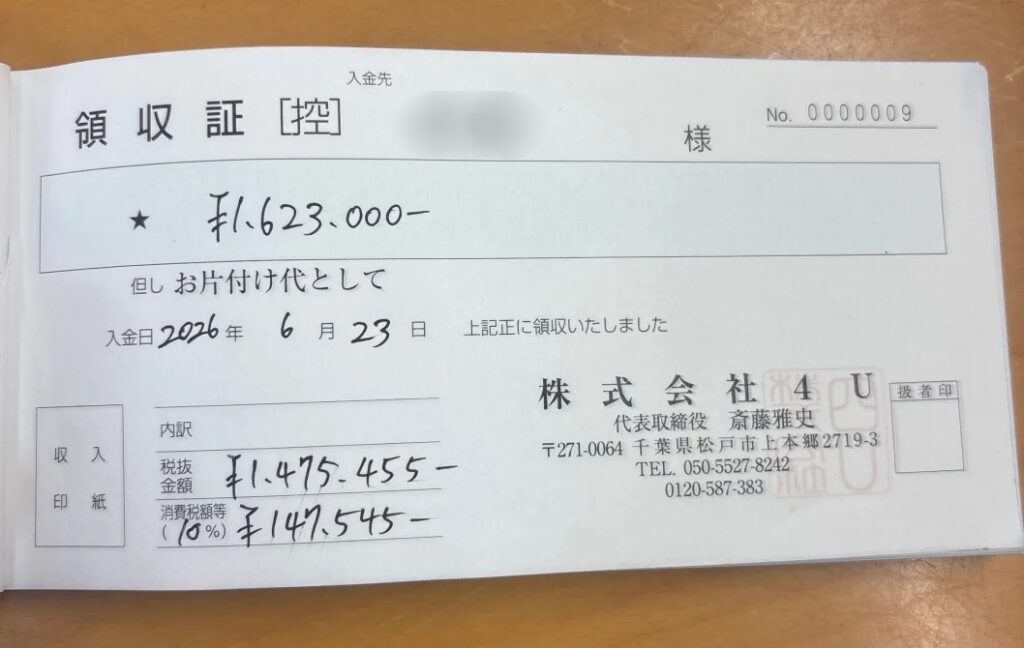 入金先
領収証 [控] 様 No. 0000009
★ ¥1,623.000-
但し お片付け代として
入金日 2026 年 6 月 23 日 上記正に領収いたしました
収入
印紙
内訳
税抜金額 ¥1.475.455-
消費税額等(10%) ¥147.545-
株式会社4U
代表取締役 斎藤雅史
〒271-0064 千葉県松戸市上本郷2719-3
TEL. 050-5527-8242
0120-587-383
扱者印